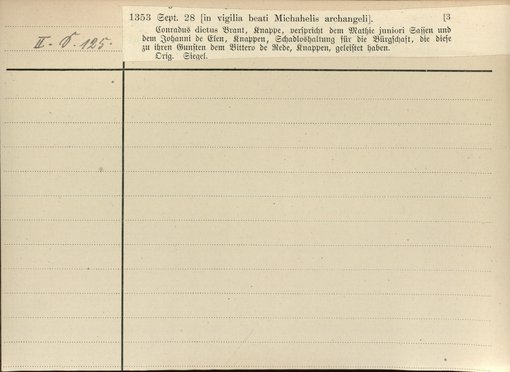 1353 Sept. 28 [in vigilia beati Michahelis archangeli]. [3
Conradus dictus Brant, Knappe, verspricht dem Mathie juniori Sassen und
dem Johanni de Esen, Knappen, Schadloshaltung für die Bürgschaft, die diese
zu ihren Gunsten dem Bittero de Rede, Knappen, geleistet haben.
Orig. Siegel.
II. S. 125.